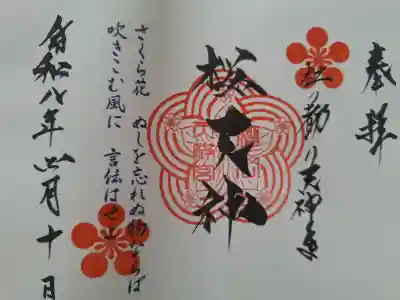 奉拝
天神
桜天神
さくら花　ぬしを忘れぬ物ならば
吹きこむ風に　言伝はせよ
令和八年四月十日